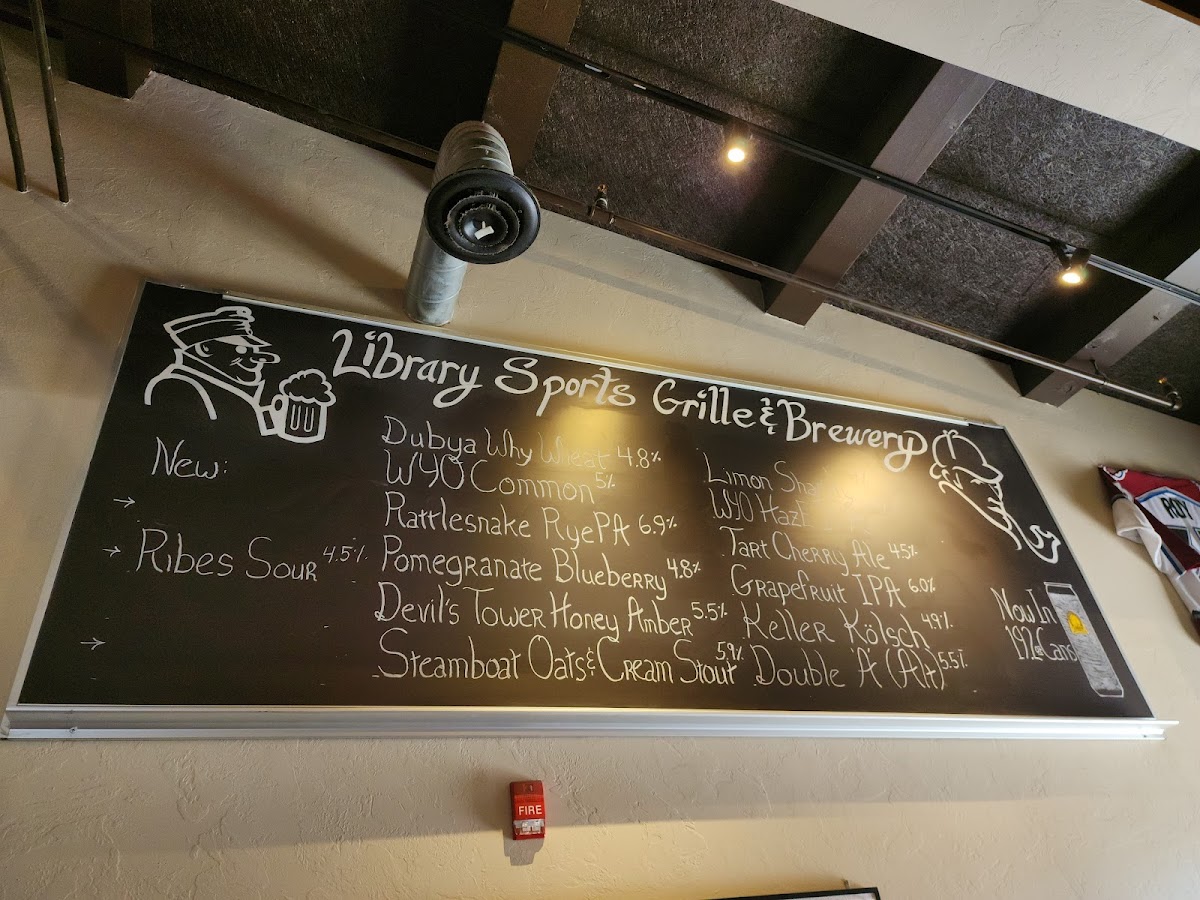 Library Sports Grille & Brewery
New:
→
→ Ribes Sour 4.5%
→
Dubya Why Wheat 4.8%
WYO Common 5%
Rattlesnake RyePA 6.9%
Pomegranate Blueberry 4.8%
Devil's Tower Honey Amber 5.5%
Steamboat Oats & Cream Stout 5.9%
Limon
WYO
Tart Cherry Ale 4.5%
Grapefruit IPA 6.0%
Keller Kölsch 4.9%
Double 'A' (Alt) 5.5%
Now In
19.2oz Cans
ROY
FIRE